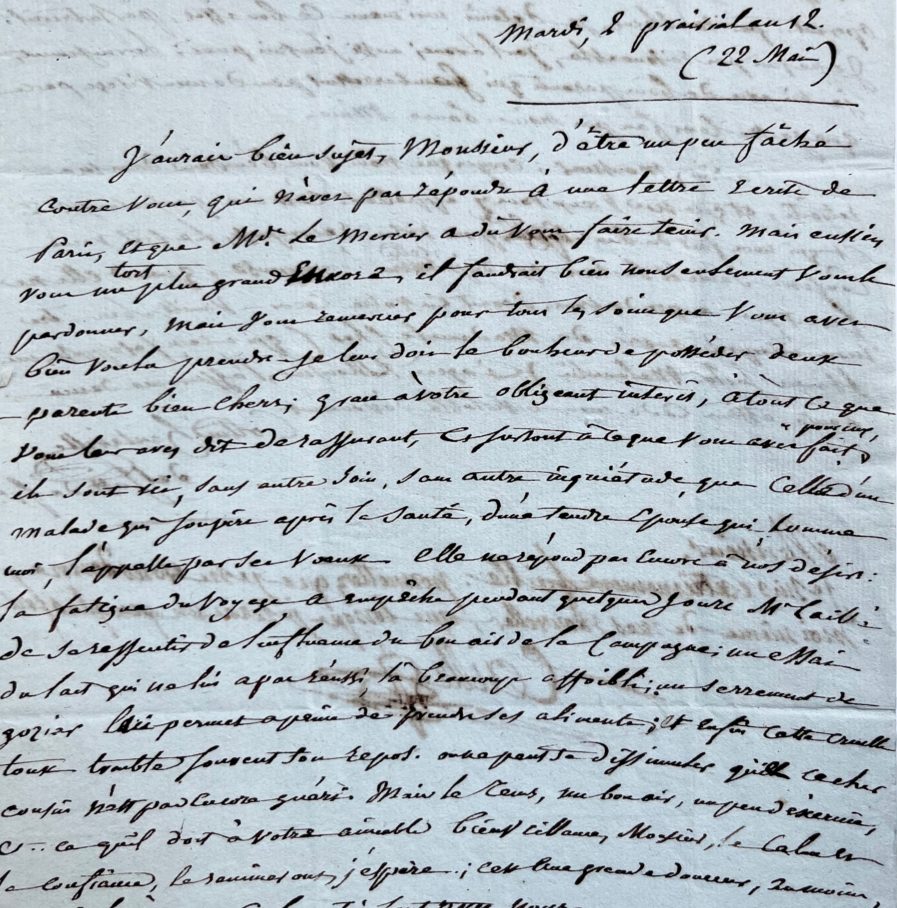 Mardi, 2 prairial an 12.
(22 Mai)
J'aurais bien sujet, Monsieur, d'être un peu fâché
contre vous, qui n'avez pas répondu à une lettre écrite de
Paris, et que Mde. Le Mercier a dû vous faire tenir. Mais eussiez
vous un tort plus grand encore, il faudrait bien non seulement vous le
pardonner, mais vous remercier pour tous les soins que vous avez
bien voulu prendre. Je leur dois le bonheur de posséder deux
parents bien chers; grace à votre obligeant intérêt, à tout ce que
vous leur avez dit de rassurant, et surtout à ce que vous avez fait pour eux,
ils sont ici, sans autre soin, sans autre inquiétude, que celle d'un
malade qui soupire après la santé, d'une tendre épouse qui, comme
moi, l'appelle par ses voeux. Elle ne répond pas encore à nos désirs:
la fatigue du voyage, a empêché pendant quelques jours Mr.
de se ressentir de l'influence du bon air de la campagne; un essai
du lait qui ne lui a pas réussi l'a beaucoup affoibli; un serrement de
gozier lui permet a peine de prendre ses alimens; et enfin cette cruelle
toux trouble souvent son repos. on ne peut se dissimuler que ce cher
cousin n'est pas encore guéri. Mais le tems, un bon air, un peu d'exercice,
et ce qu'il doit à votre aimable bienveillance, Monsieur, le calme et
la confiance, le ranimeront, j'espère; c'est une grande douceur, au moins,